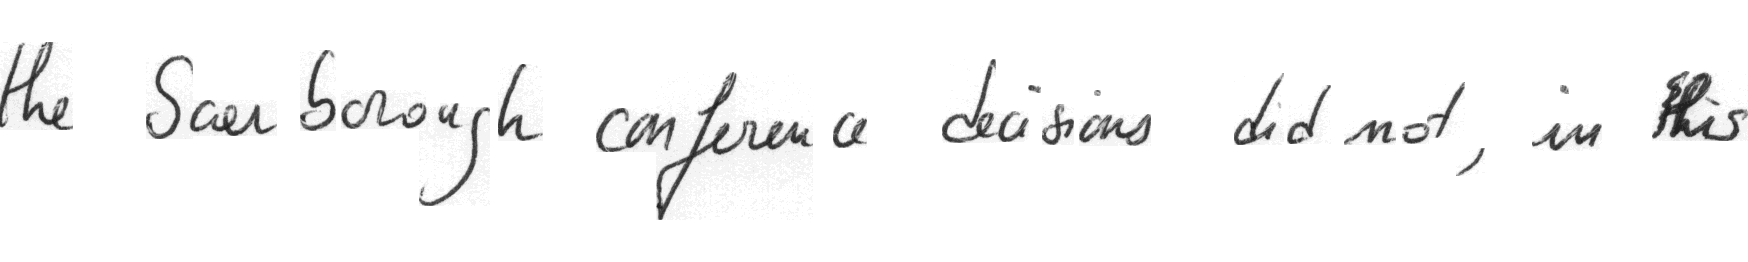 the Scarborough conference decisions did not, in this